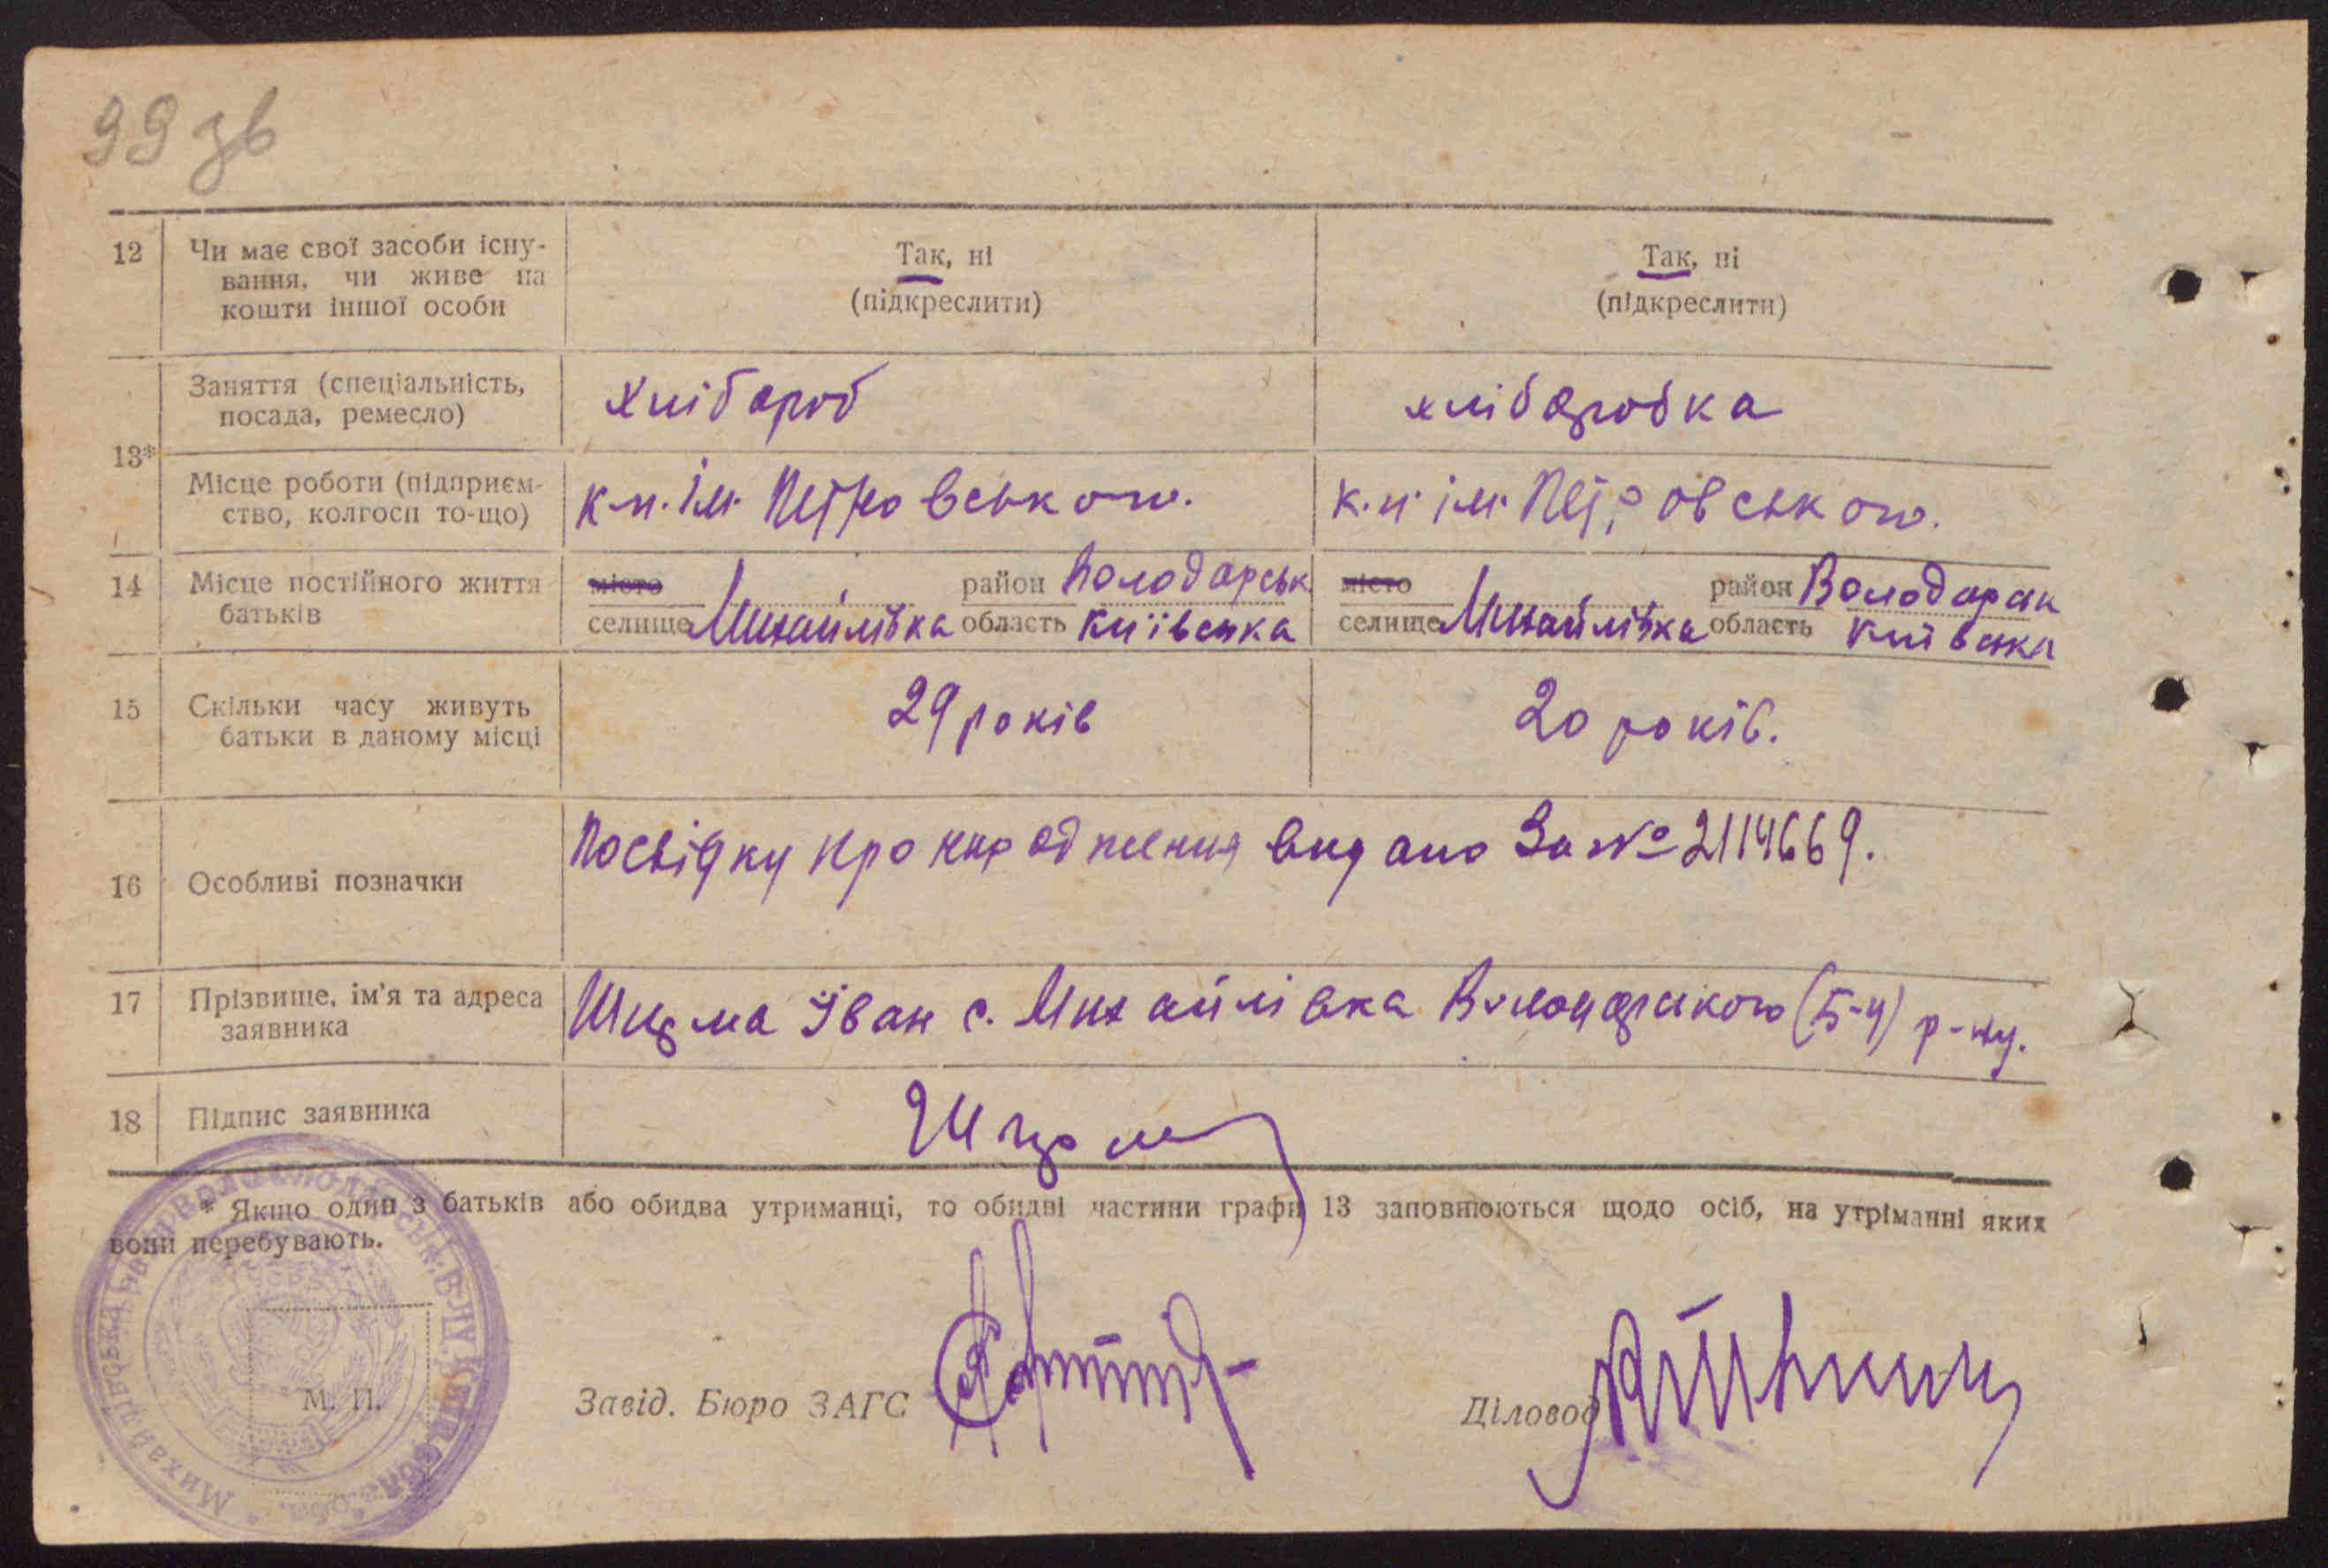 99 зв
12 Чи має свої засоби існу- Так, ні Так, ні
вання, чи живе на (підкреслити) (підкреслити)
кошти іншої особи
13* Заняття (спеціальність, хлібороб хліборобка
посада, ремесло)
Місце роботи (підприєм- к-п. ім. Петровського. к.п. ім. Петровського.
ство, колгосп то-що)
14 Місце постійного життя місто район Володарськ місто район
батьків селище Михайлівка область Київська селище Михайлівка область Київська
15 Скільки часу живуть 29 років 20 років.
батьки в даному місці
16 Особливі позначки Посвідку про видано За № 2114669.
17 Прізвище, ім'я та адреса Іван с. Михайлівка (Б-Ц) р-ну.
заявника
18 Підпис заявника
* Якщо один з батьків або обидва утриманці, то обидві частини графи 13 заповнюються щодо осіб, на утріманні яких
вони перебувають.
М. П.
Завід. Бюро ЗАГС Діловод